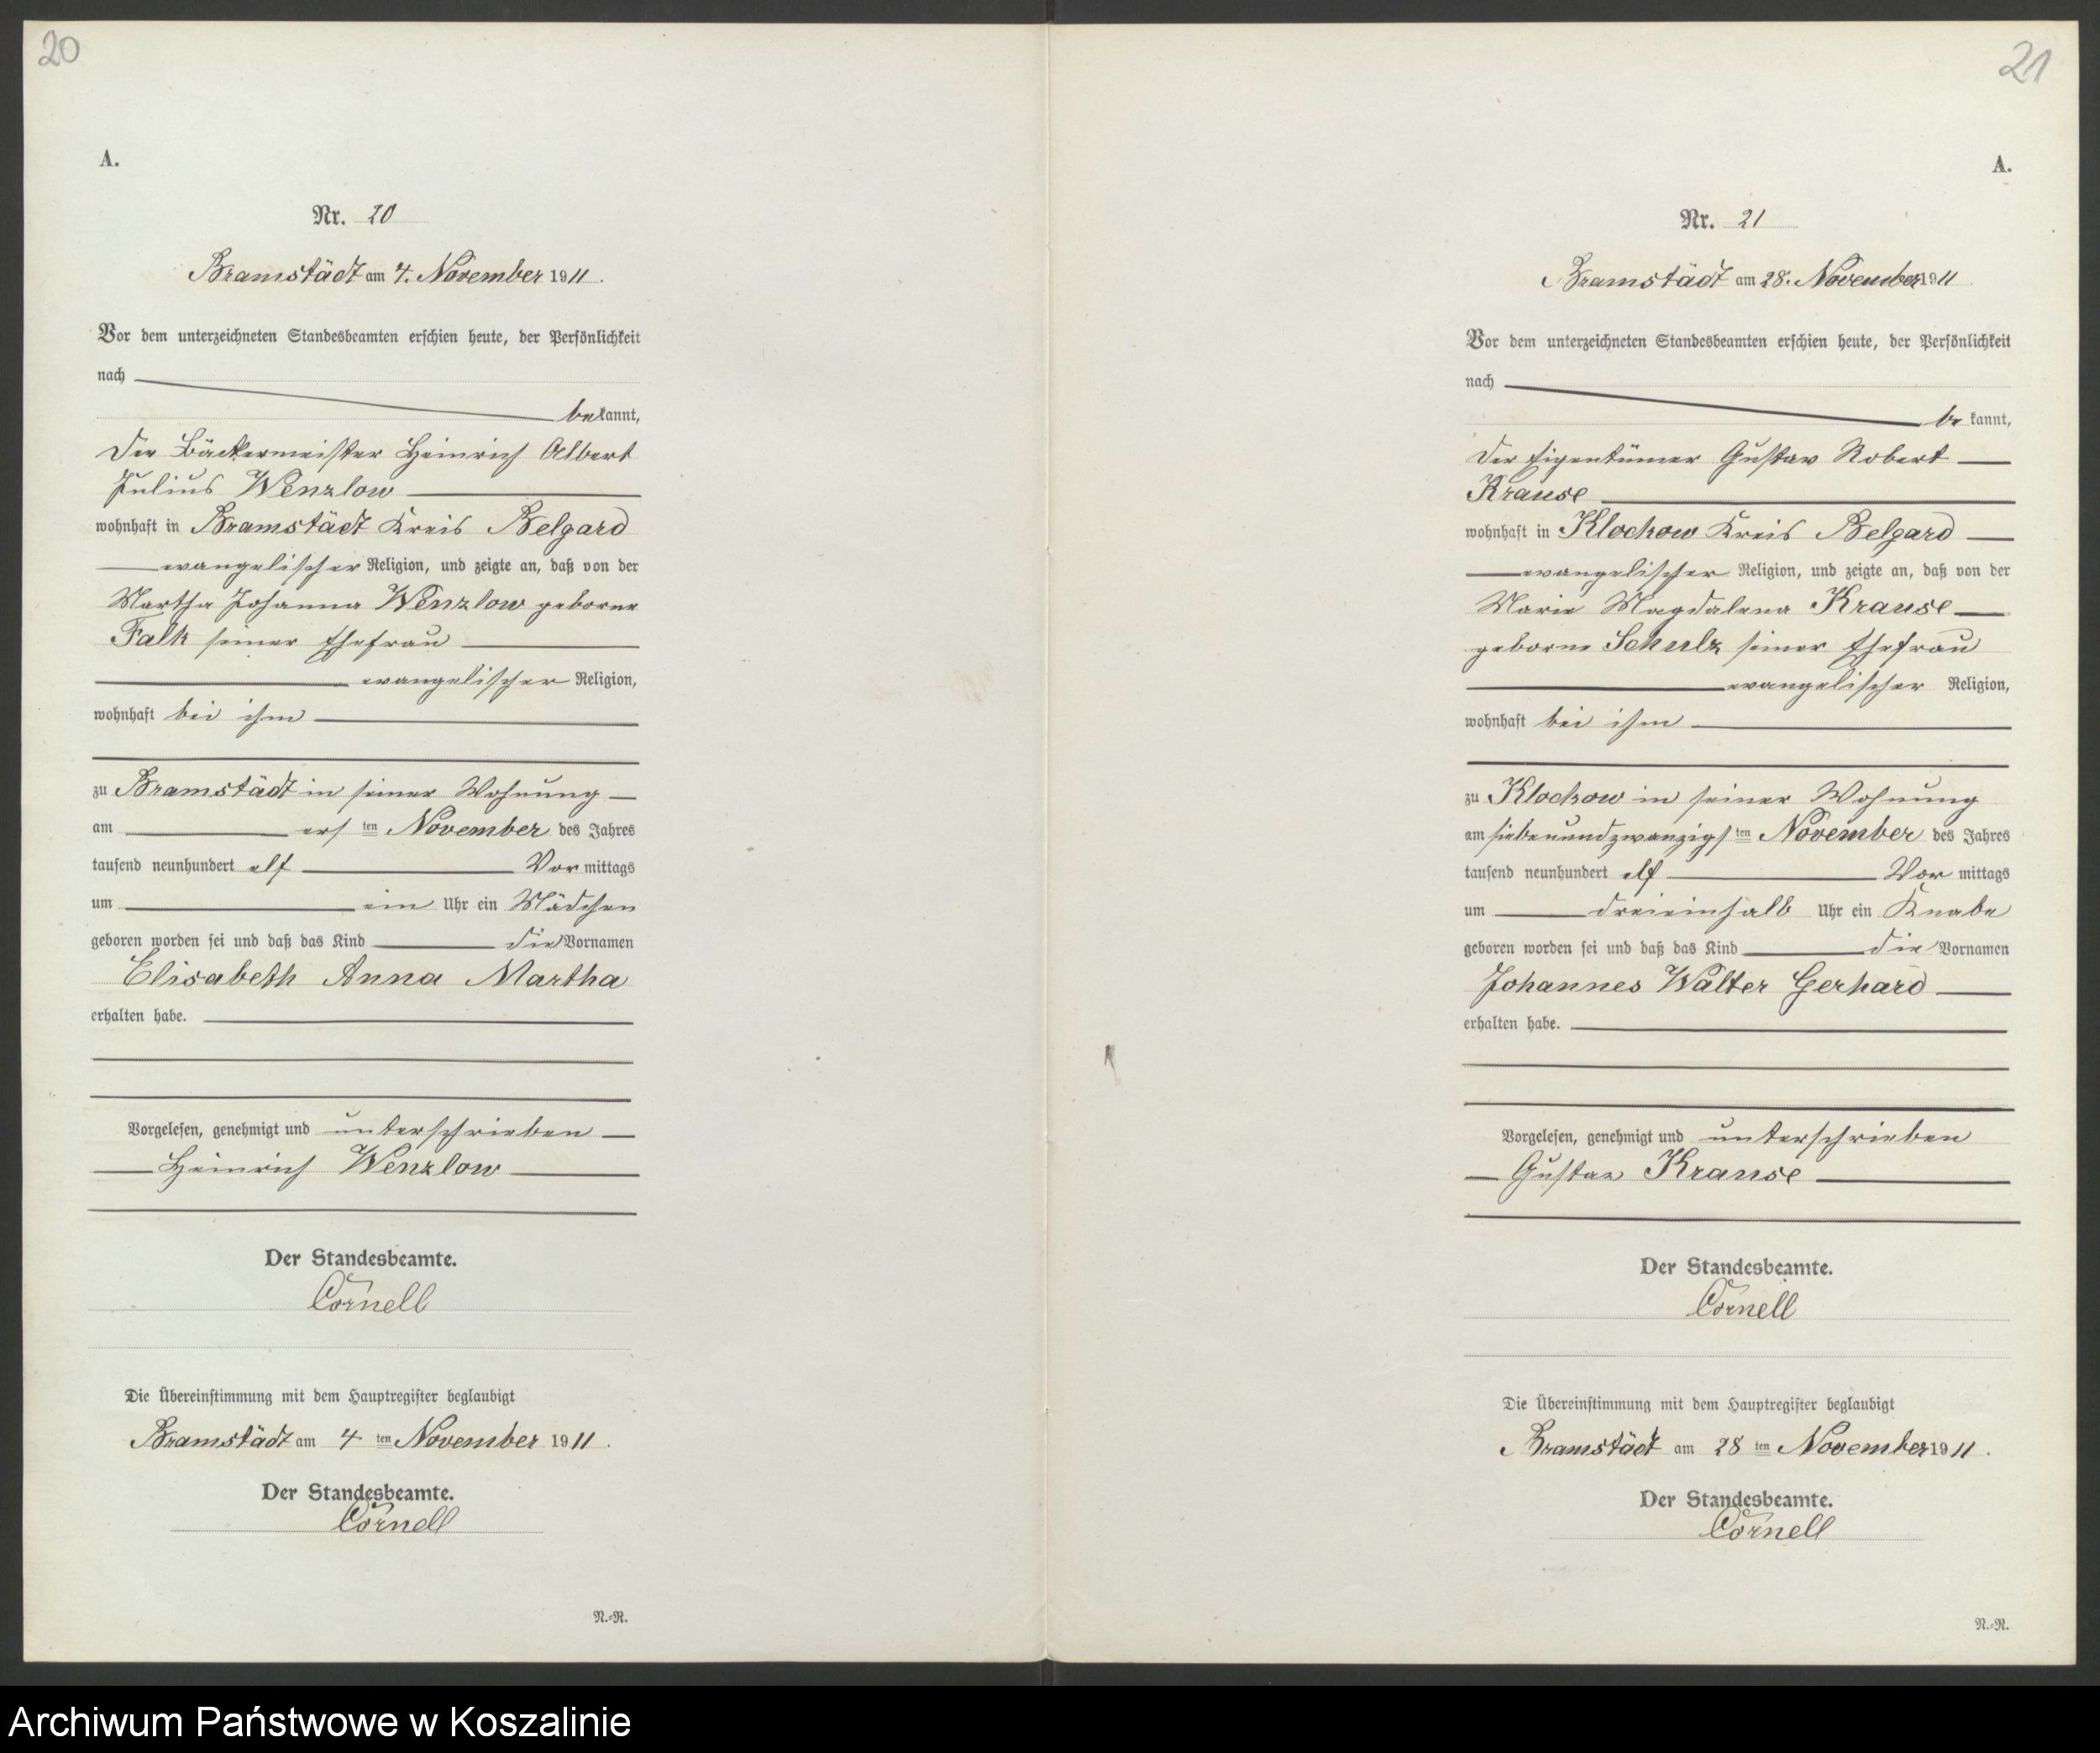 20
A.
Nr. 20
Bramstädt am 4. November 1911.
Vor dem unterzeichneten Standesbeamten erschien heute, der Persönlichkeit
nach
bekannt,
der Bäckermeister Heinrich Albert
Julius Wenzlow
wohnhaft in Bramstädt Kreis Belgard
evangelischer Religion, und zeigte an, daß von der
Martha Johanna Wenzlow geborne
Falk seiner Ehefrau
evangelischer Religion,
wohnhaft bei ihm
zu Bramstädt in seiner Wohnung
am ersten November des Jahres
tausend neunhundert elf Vormittags
um ein Uhr ein Mädchen
geboren worden sei und daß das Kind die Vornamen
Elisabeth Anna Martha
erhalten habe.
Vorgelesen, genehmigt und unterschrieben
Heinrich Wenzlow
Der Standesbeamte.
Cornell
Die Übereinstimmung mit dem Hauptregister beglaubigt
Bramstädt am 4 ten November 1911.
Der Standesbeamte.
Cornell
N.=R.
21
A.
Nr. 21
Bramstädt am 28. November 1911
Vor dem unterzeichneten Standesbeamten erschien heute, der Persönlichkeit
nach
bekannt,
der Eigentümer Gustav Robert
Krause
wohnhaft in Klockow Kreis Belgard
evangelischer Religion, und zeigte an, daß von der
Marie Magdalena Krause
geborne Schulz seiner Ehefrau
evangelischer Religion,
wohnhaft bei ihm
zu Klockow in seiner Wohnung
am siebenundzwanzigsten November des Jahres
tausend neunhundert elf Vormittags
um dreieinhalb Uhr ein Knabe
geboren worden sei und daß das Kind die Vornamen
Johannes Walter Gerhard
erhalten habe.
Vorgelesen, genehmigt und unterschrieben
Gustav Krause
Der Standesbeamte.
Cornell
Die Übereinstimmung mit dem Hauptregister beglaubigt
Bramstädt am 28 ten November 1911.
Der Standesbeamte.
Cornell
N.=R.
Archiwum Państwowe w Koszalinie